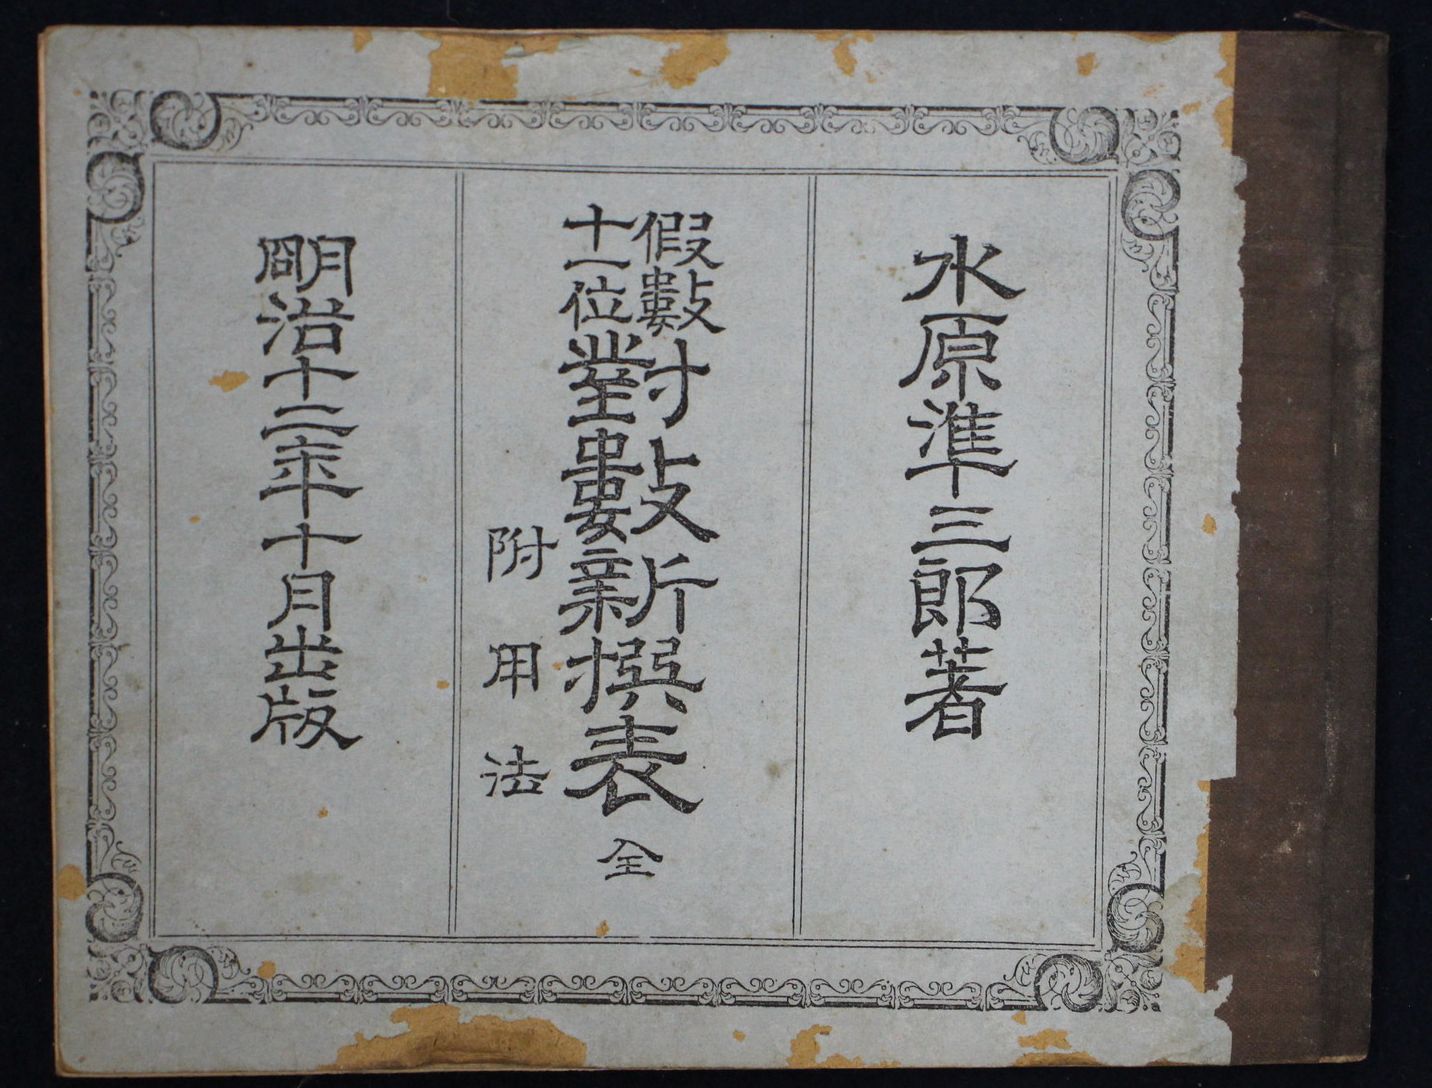 水原準三郎著
假數
十一位
對數新撰表 全
附用法
明治十二年十月出版